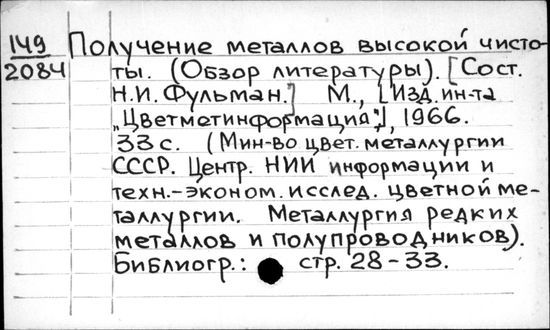 149 Получение металлов высокой чисто-
2084 ты. (Обзор литературы). [Сост.
Н.И. Фульман.] М., [Изд. ин-та
„Цветметинформация"], 1966.
33 с. (Мин-во цвет. металлургии
СССР. Центр. НИИ информации и
техн.-эконом. исслед. цветной ме-
таллургии. Металлургия редких
металлов и полупроводников).
Библиогр.: стр. 28-33.